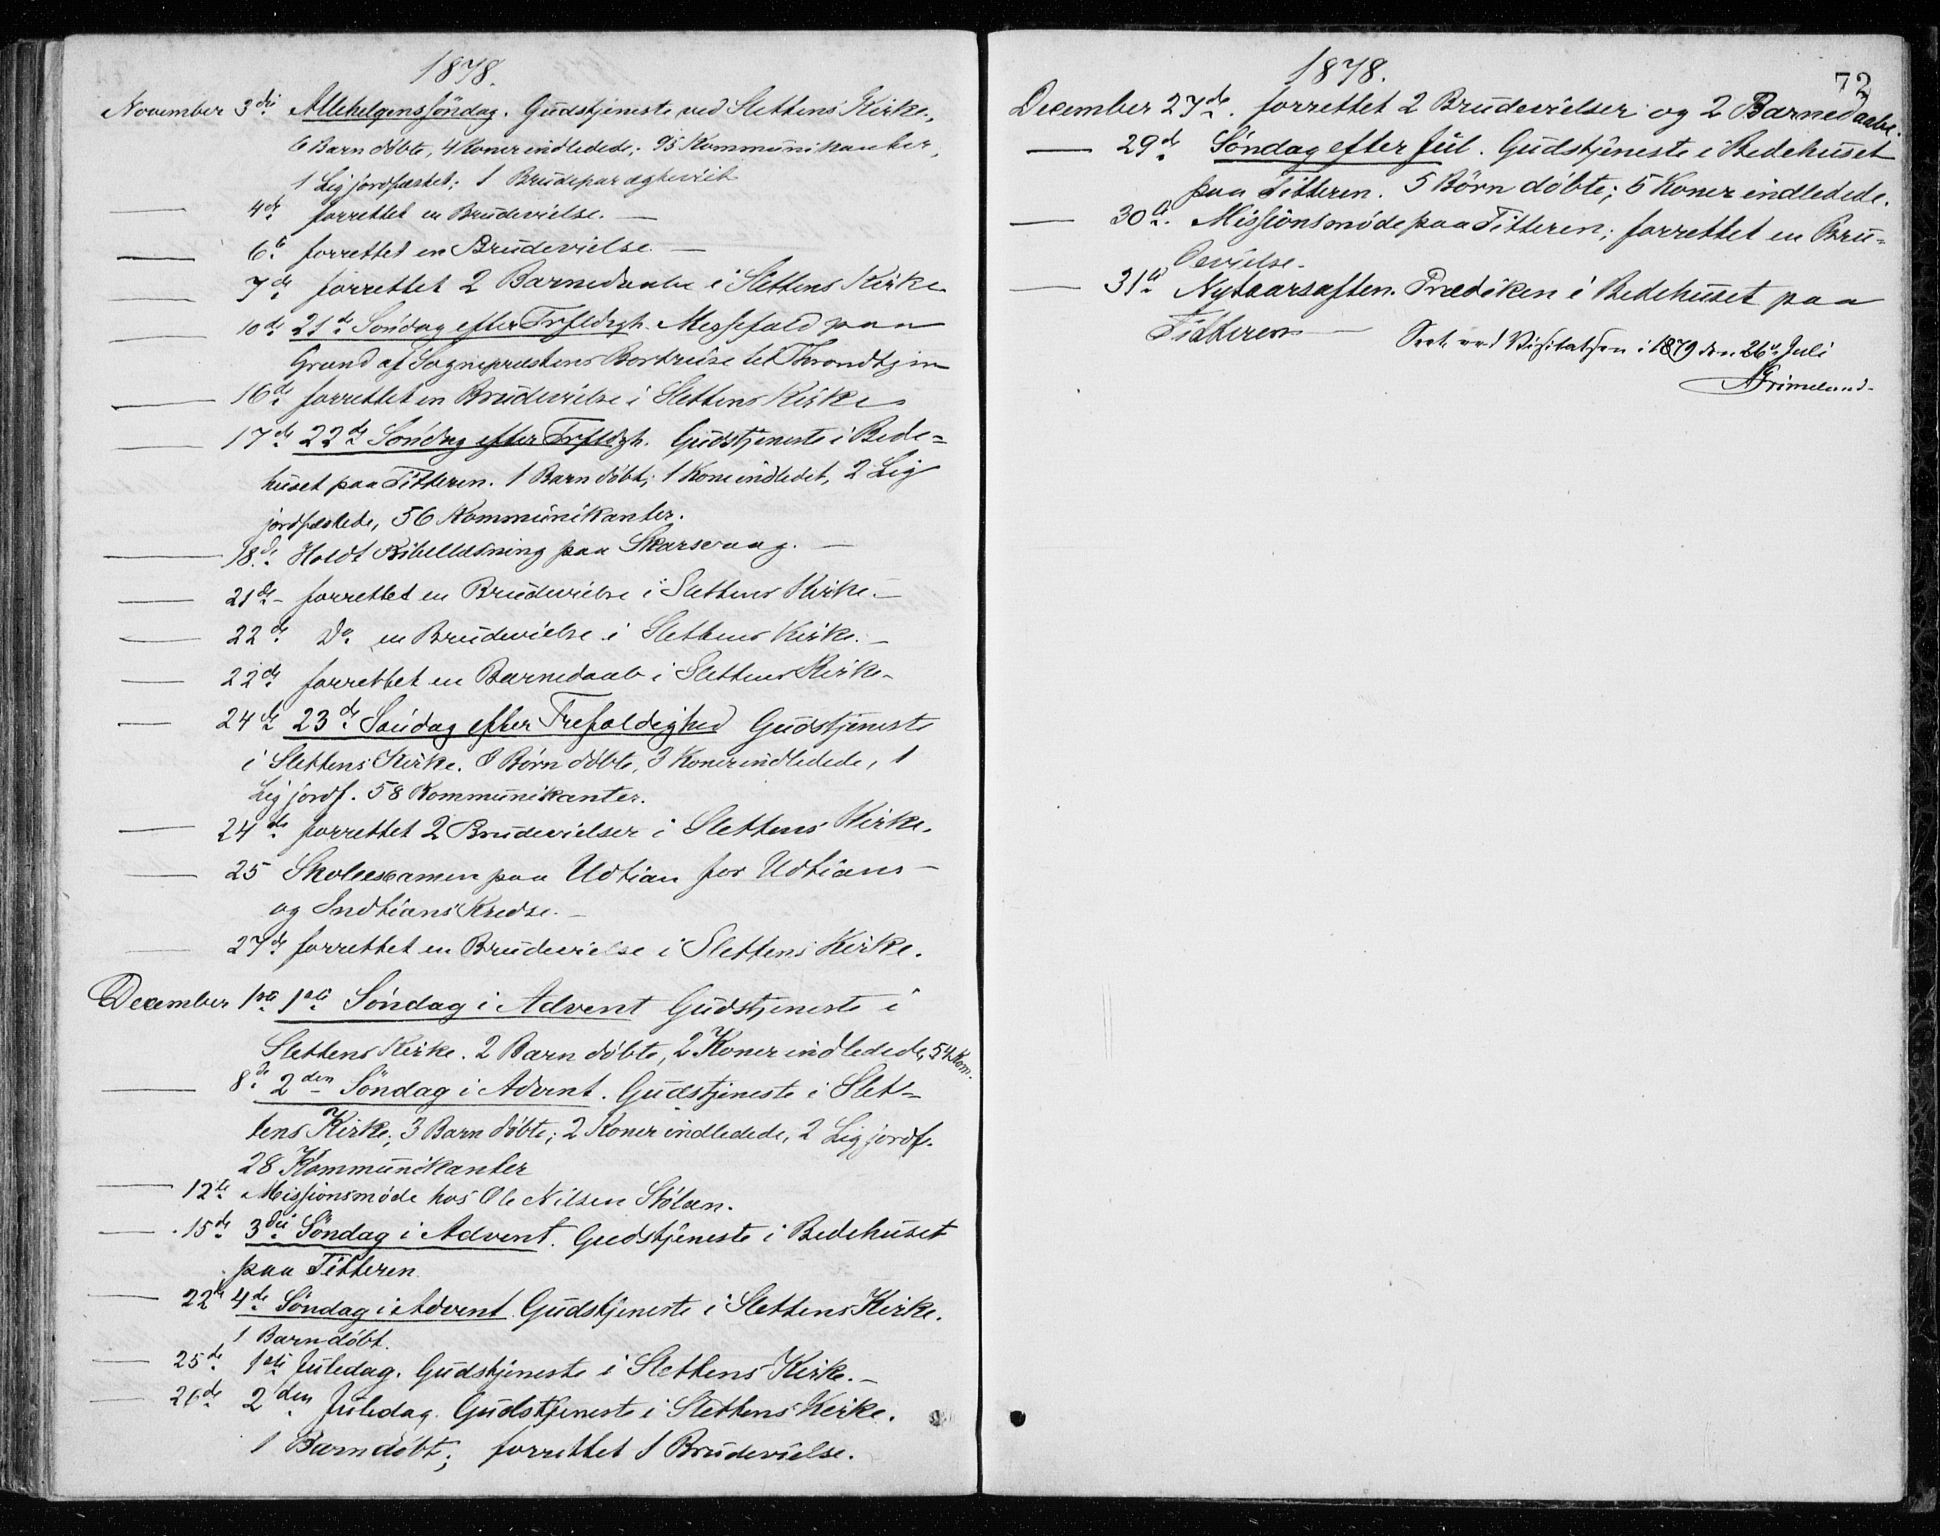 1878.
November 3die Allehelgenssöndag. Gudstjeneste ved Slettens Kirke.
6 Barn döbte, 4 Koner indledede; 95 Kommunikanter,
1 Lig jordfæstet; 1 Brudepar ægteviet
— 4de forrettet en Brudevielse. —
— 6te forrettet en Brudevielse. —
— 7de forrettet 2 Barnedaabe i Slettens Kirke
— 10de 21de Söndag efter Trfldgh. Messefald paa
Grund af Sognepræstens Bortreise til Throndhjem
— 16de forrettet en Brudevielse i Slettens Kirke
— 17de 22de Söndag efter Trfldgh. Gudstjeneste i Bede=
huset paa Titteren. 1 Barn döbt; 1 Kone indledet, 2 Lig
jordfæstede, 56 Kommunikanter.
— 18de Holdt Bibellæsning paa Skarsvaag. —
— 21de forrettet en Brudevielse i Slettens Kirke. —
— 22de Do en Brudevielse i Slettens Kirke. —
— 22de forrettet en Barnedaab i Slettens Kirke.
— 24de 23de Söndag efter Trefoldighed Gudstjeneste
i Slettens Kirke. Börn döbte, 3 Koner indledede, 1
Lig jordf. 58 Kommunikanter.
— 24de forrettet 2 Brudevielser i Slettens Kirke.
— 25 Skoleexamen paa Udtian for Udtians —
og Indtians Kredse. —
— 27de forrettet en Brudevielse i Slettens Kirke.
December 1ste 1ste Söndag i Advent Gudstjeneste i
Slettens Kirke. 2 Barn döbte, 2 Koner indledede, 54 Kom.
— 8de 2den Söndag i Advent. Gudstjeneste i Slet=
tens Kirke; 3 Barn döbte; 2 Koner indledede, 2 Lig jordf.
28 Kommunikanter
— 12te Missionsmöde hos Ole Nilsen Stölan.
— 15de 3die Söndag i Advent. Gudstjeneste i Bedehuset
paa Titteren.
— 22de 4de Söndag i Advent. Gudstjeneste i Slettens Kirke.
1 Barn döbt.
— 25de 1ste Juledag. Gudstjeneste i Slettens Kirke. —
— 26de 2den Juledag. Gudstjeneste i Slettens Kirke.
1 Barn döbt; forrettet 1 Brudevielse.
1878.
72
December 27de. forrettet 2 Brudevielser og 2 Barnedaabe.
— 29de Söndag efter Jul. Gudstjeneste i Bedehuset
paa Titteren. 5 Börn döbte; 5 Koner indledede.
— 30te. Missionsmöde paa Titteren; forrettet en Bru=
devielse.
— 31te Nytaarsaften. Prædiken i Bedehuset paa
Titteren —
Seet ved Visitatsen i 1879 den 26de Juli
Grimelund.